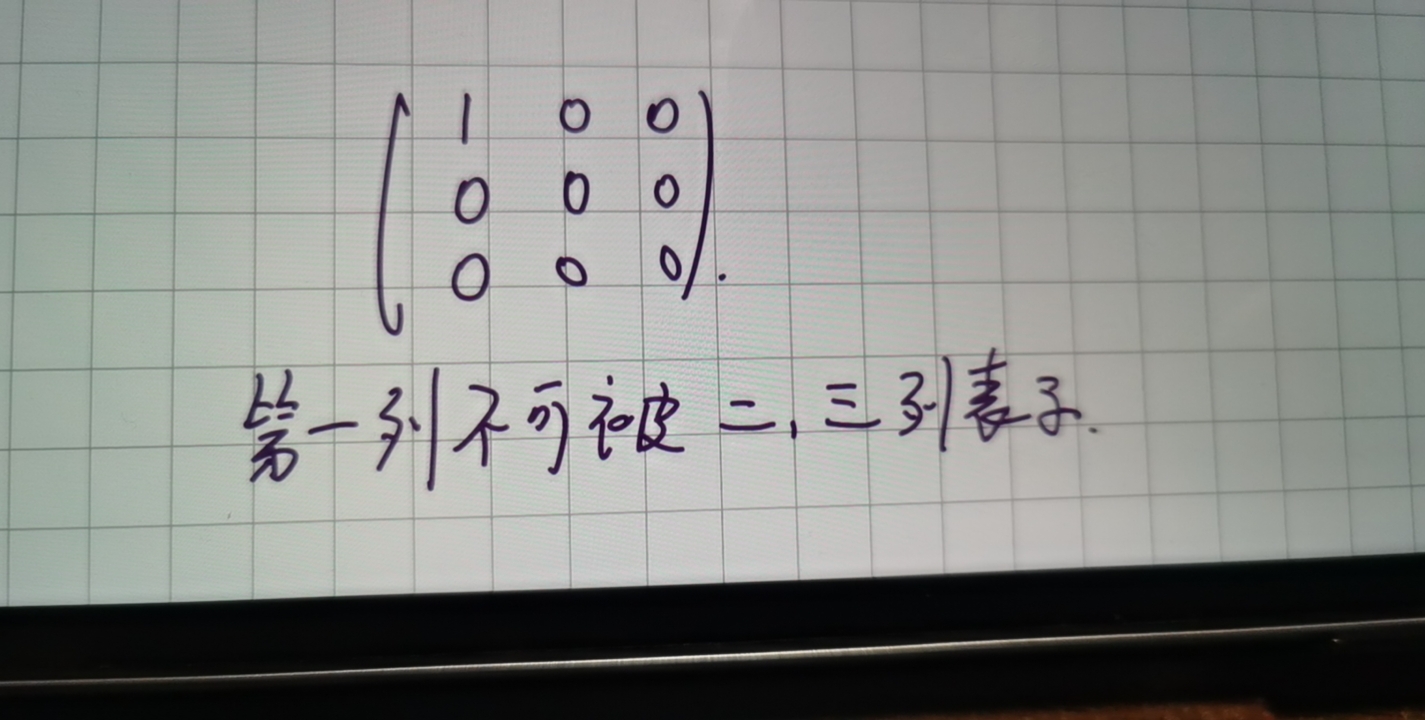 1 0 0
0 0 0
0 0 0.
第一列不可被二、三列表示.